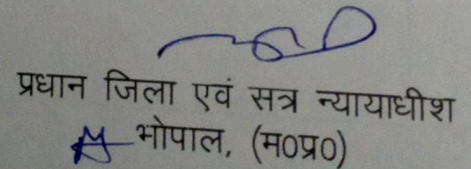 प्रधान जिला एवं सत्र न्यायाधीश
भोपाल, (म०प्र०)